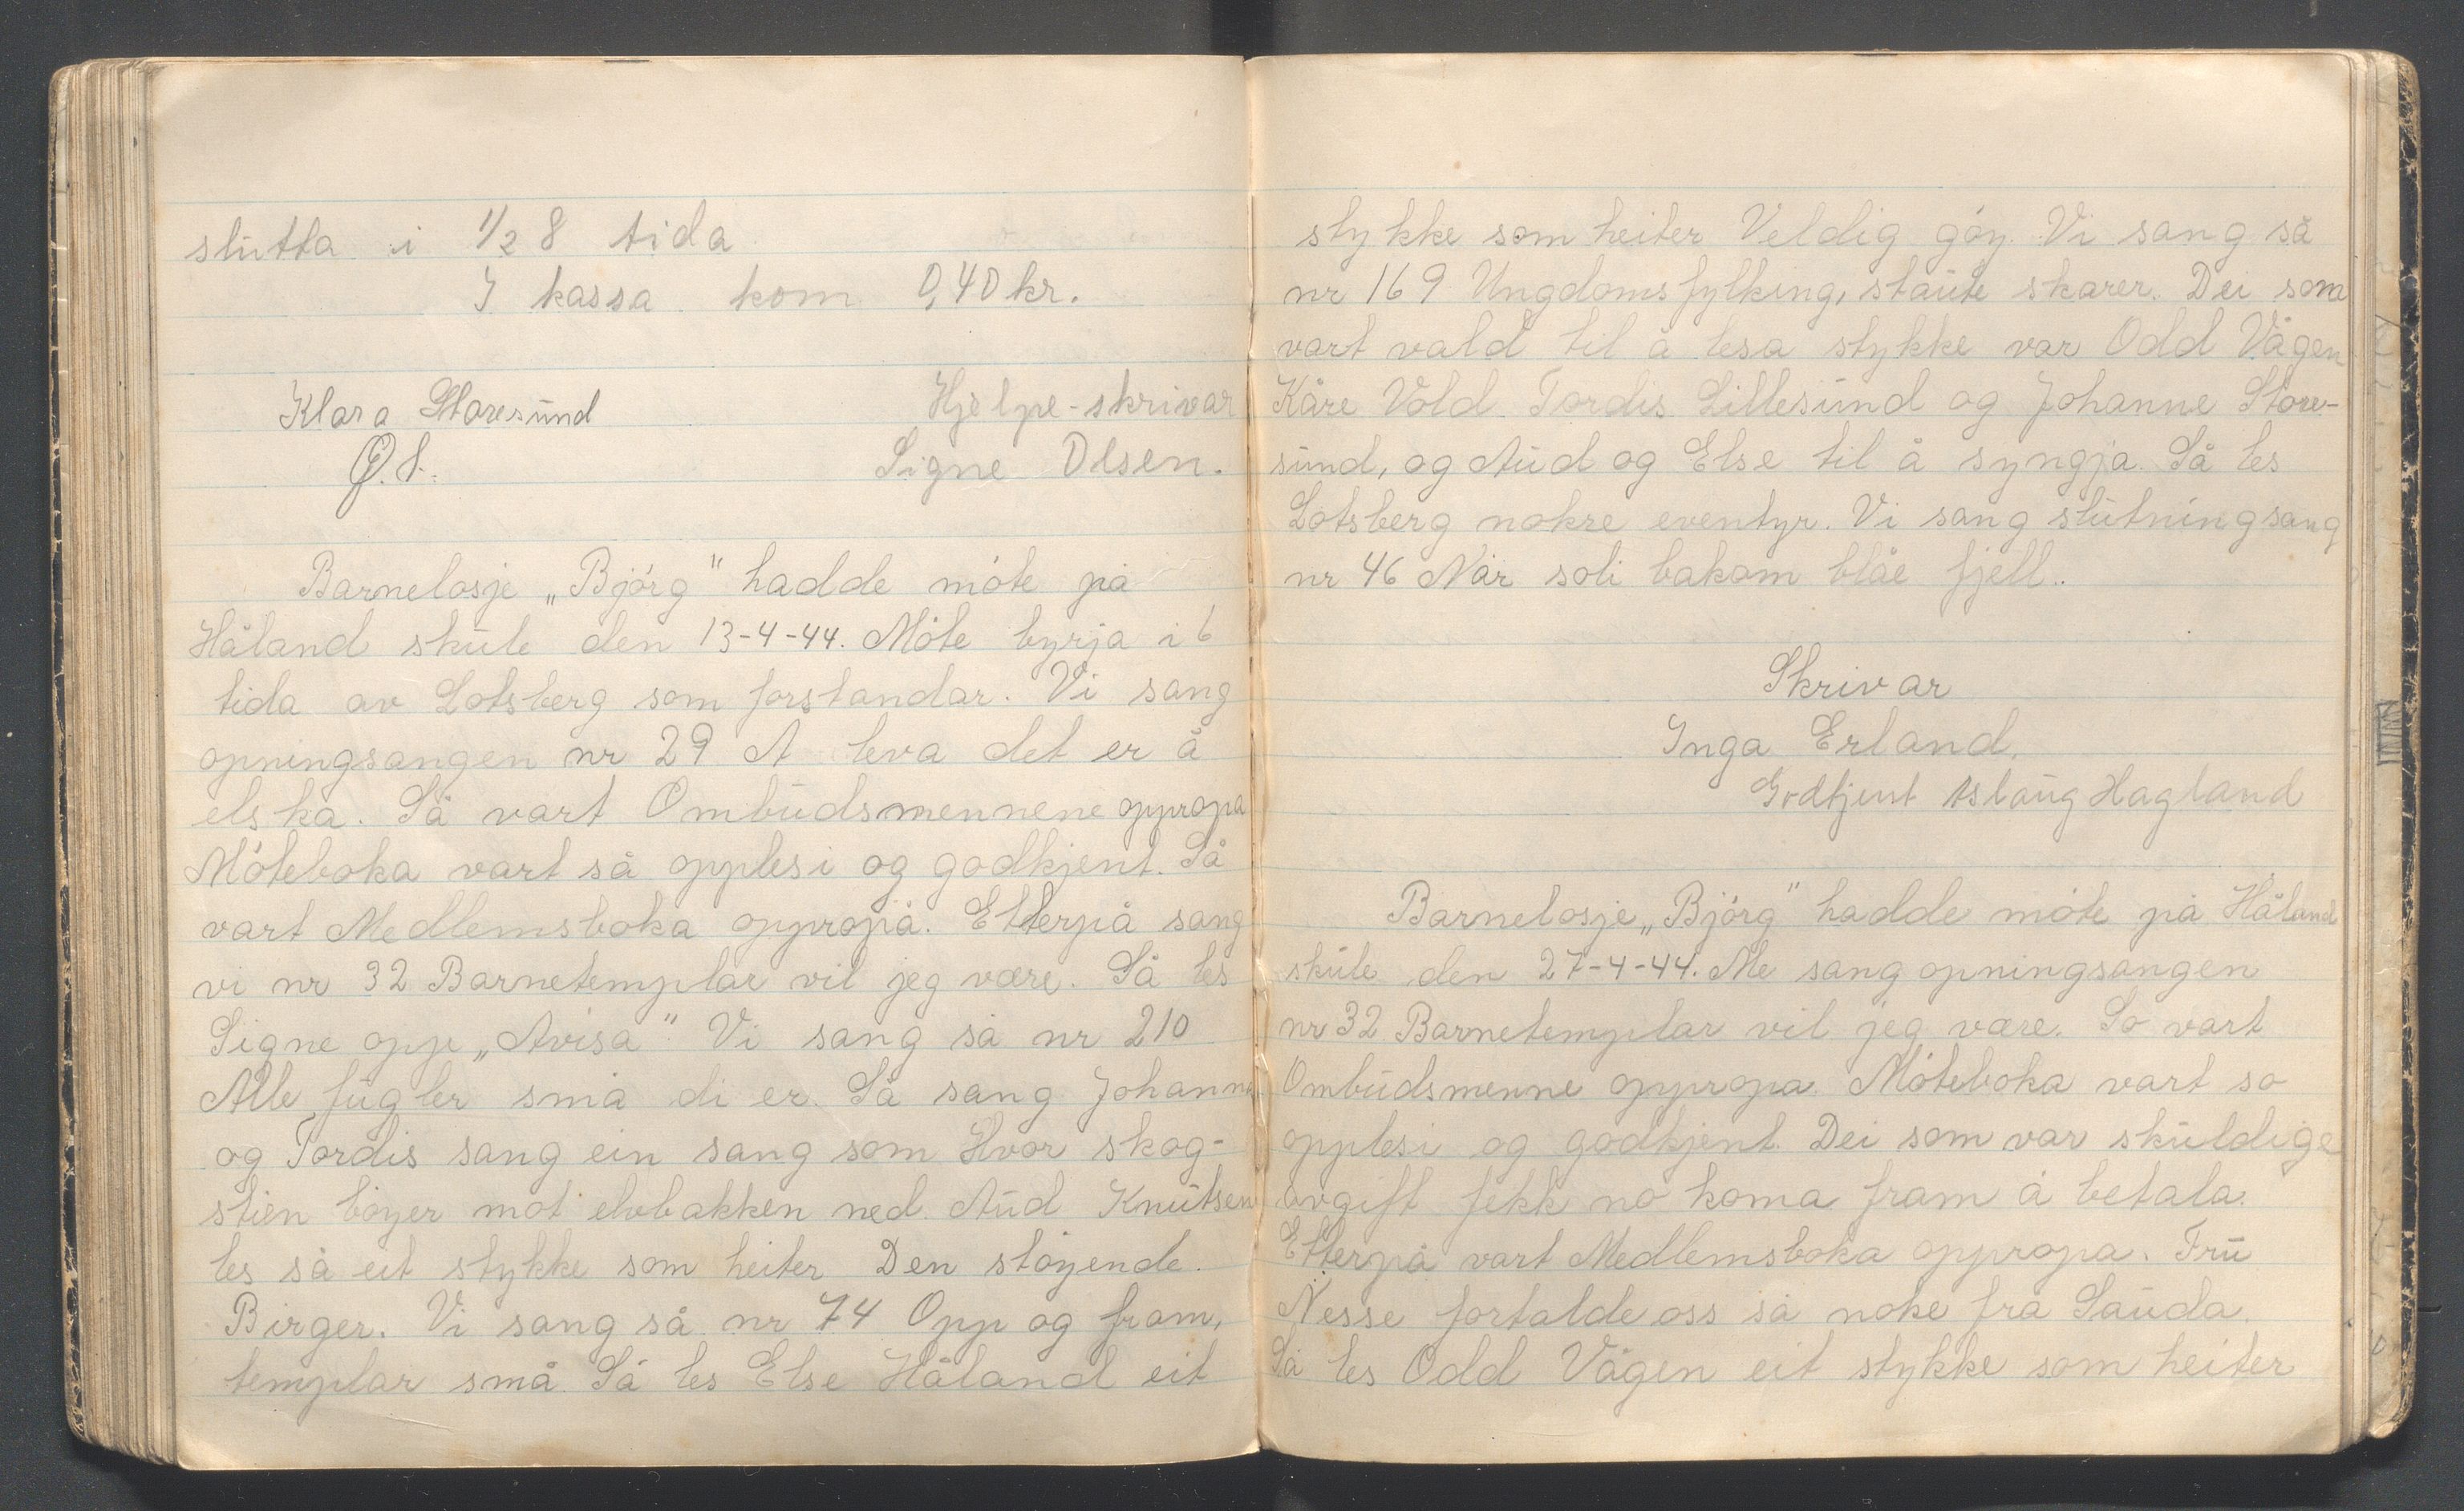 slutta i 1/2 8 tida
I kassa kom 0,40 kr.
Klara Storesund
Hjelpe-skrivar
Ø.T.
Signe Olsen.
Barnelosje „Björg" hadde möte på
Håland skule den 13-4-44. Möte byrja i 6
tida av Lotsberg som forstandar. Vi sang
opningsangen nr 29 A leva det er å
elska. Så vart Ombudsmennene oppropa
Möteboka vart så opplesi og godkjent. Så
vart Medlemsboka oppropå. Etterpå sang
vi nr 32 Barnetemplar vil jeg være. Så les
Signe opp „Avisa" Vi sang så nr 210
Alle fugler små di er. Så sang Johanne
og Tordis sang ein sang som Hvor skog-
stien böyer mot elvbakken ned. Aud Knutsen
les så eit stykke som heiter Den stöyende.
Birger. Vi sang så nr 74 Opp og fram,
templar små. Så les Else Håland eit
stykke som heiter Veldig göy. Vi sang så
nr 169 Ungdomsfylking, staute skarer. Dei som
vart vald til å lesa stykke var Odd Vågen,
Kåre Vold Tordis Lillesund og Johanne Store-
sund, og Aud og Else til å syngja. Så les
Lotsberg nokre eventyr. Vi sang slutningsang
nr 46 Når soli bakom blåe fjell..
Skrivar
Inga Erland.
Godkjent Aslaug Hagland
Barnelosje „Björg" hadde möte på Håland
skule den 27-4-44. Me sang opningsangen
nr 32 Barnetemplar vil jeg være. So vart
Ombudsmenne oppropa. Möteboka vart so
opplesi og godkjent. Dei som var skuldige
avgift fekk no koma fram å betala.
Etterpå vart Medlemsboka oppropa. Fru
Nesse fortalde oss så noke frå Sauda.
Så les Odd Vågen eit stykke som heiter